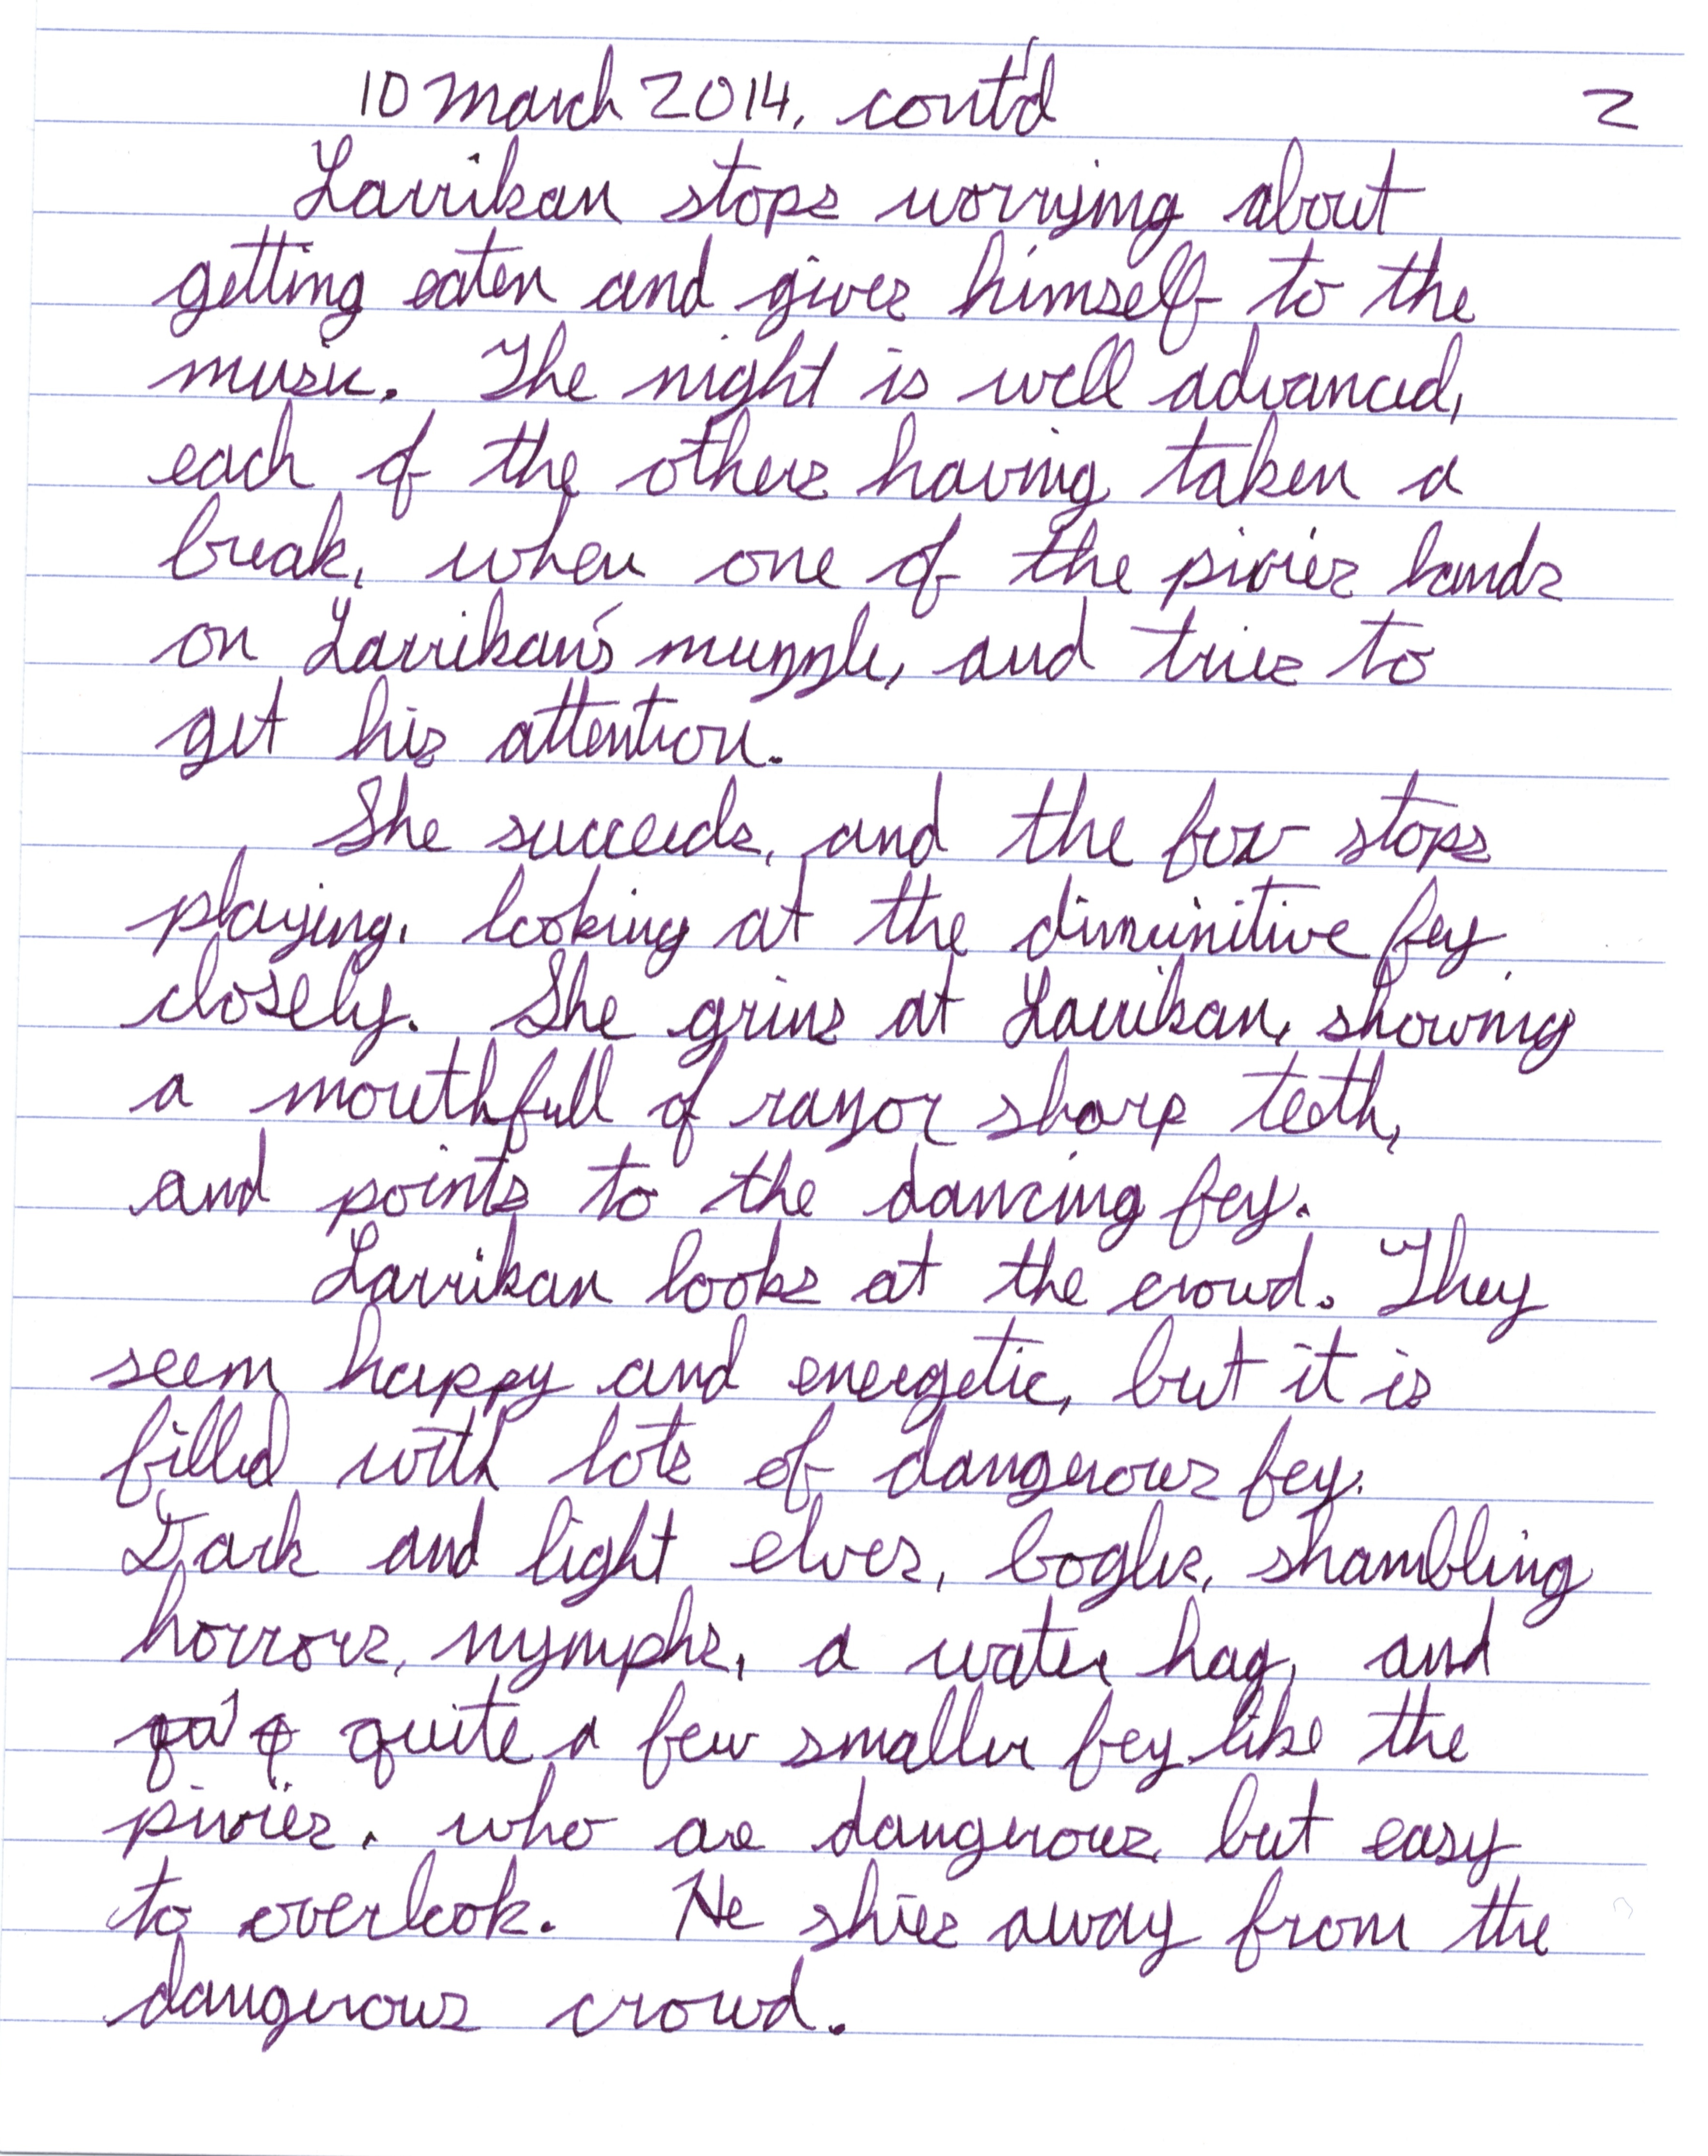 10 March 2014, cont'd 2
Larrikan stops worrying about
getting eaten and gives himself to the
music. The night is well advanced,
each of the others having taken a
break, when one of the pixies lands
on Larrikan's muzzle, and tries to
get his attention.
She succeeds, and the fox stops
playing, looking at the diminitive fey
closely. She grins at Larrikan, showing
a mouthfull of razor sharp teeth,
and points to the dancing fey.
Larrikan looks at the crowd. They
seem happy and energetic, but it is
filled with lots of dangerous fey.
Dark and light elves, bogles, shambling
horrors, nymphs, a water hag, and
quite a few smaller fey like the
pixies, who are dangerous but easy
to overlook. He shies away from the
dangerous crowd.